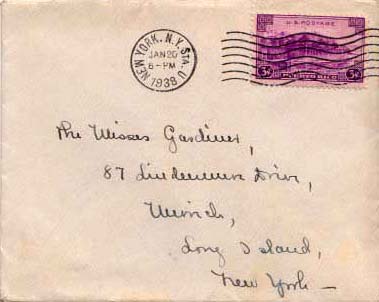 NEW YORK, N.Y. STA. U
JAN 20
6-PM
1938
U.S. POSTAGE
3¢ PUERTO RICO 3¢
The Misses Gardiner,
87 Lindenmere Drive,
Merrick,
Long Island,
New York —